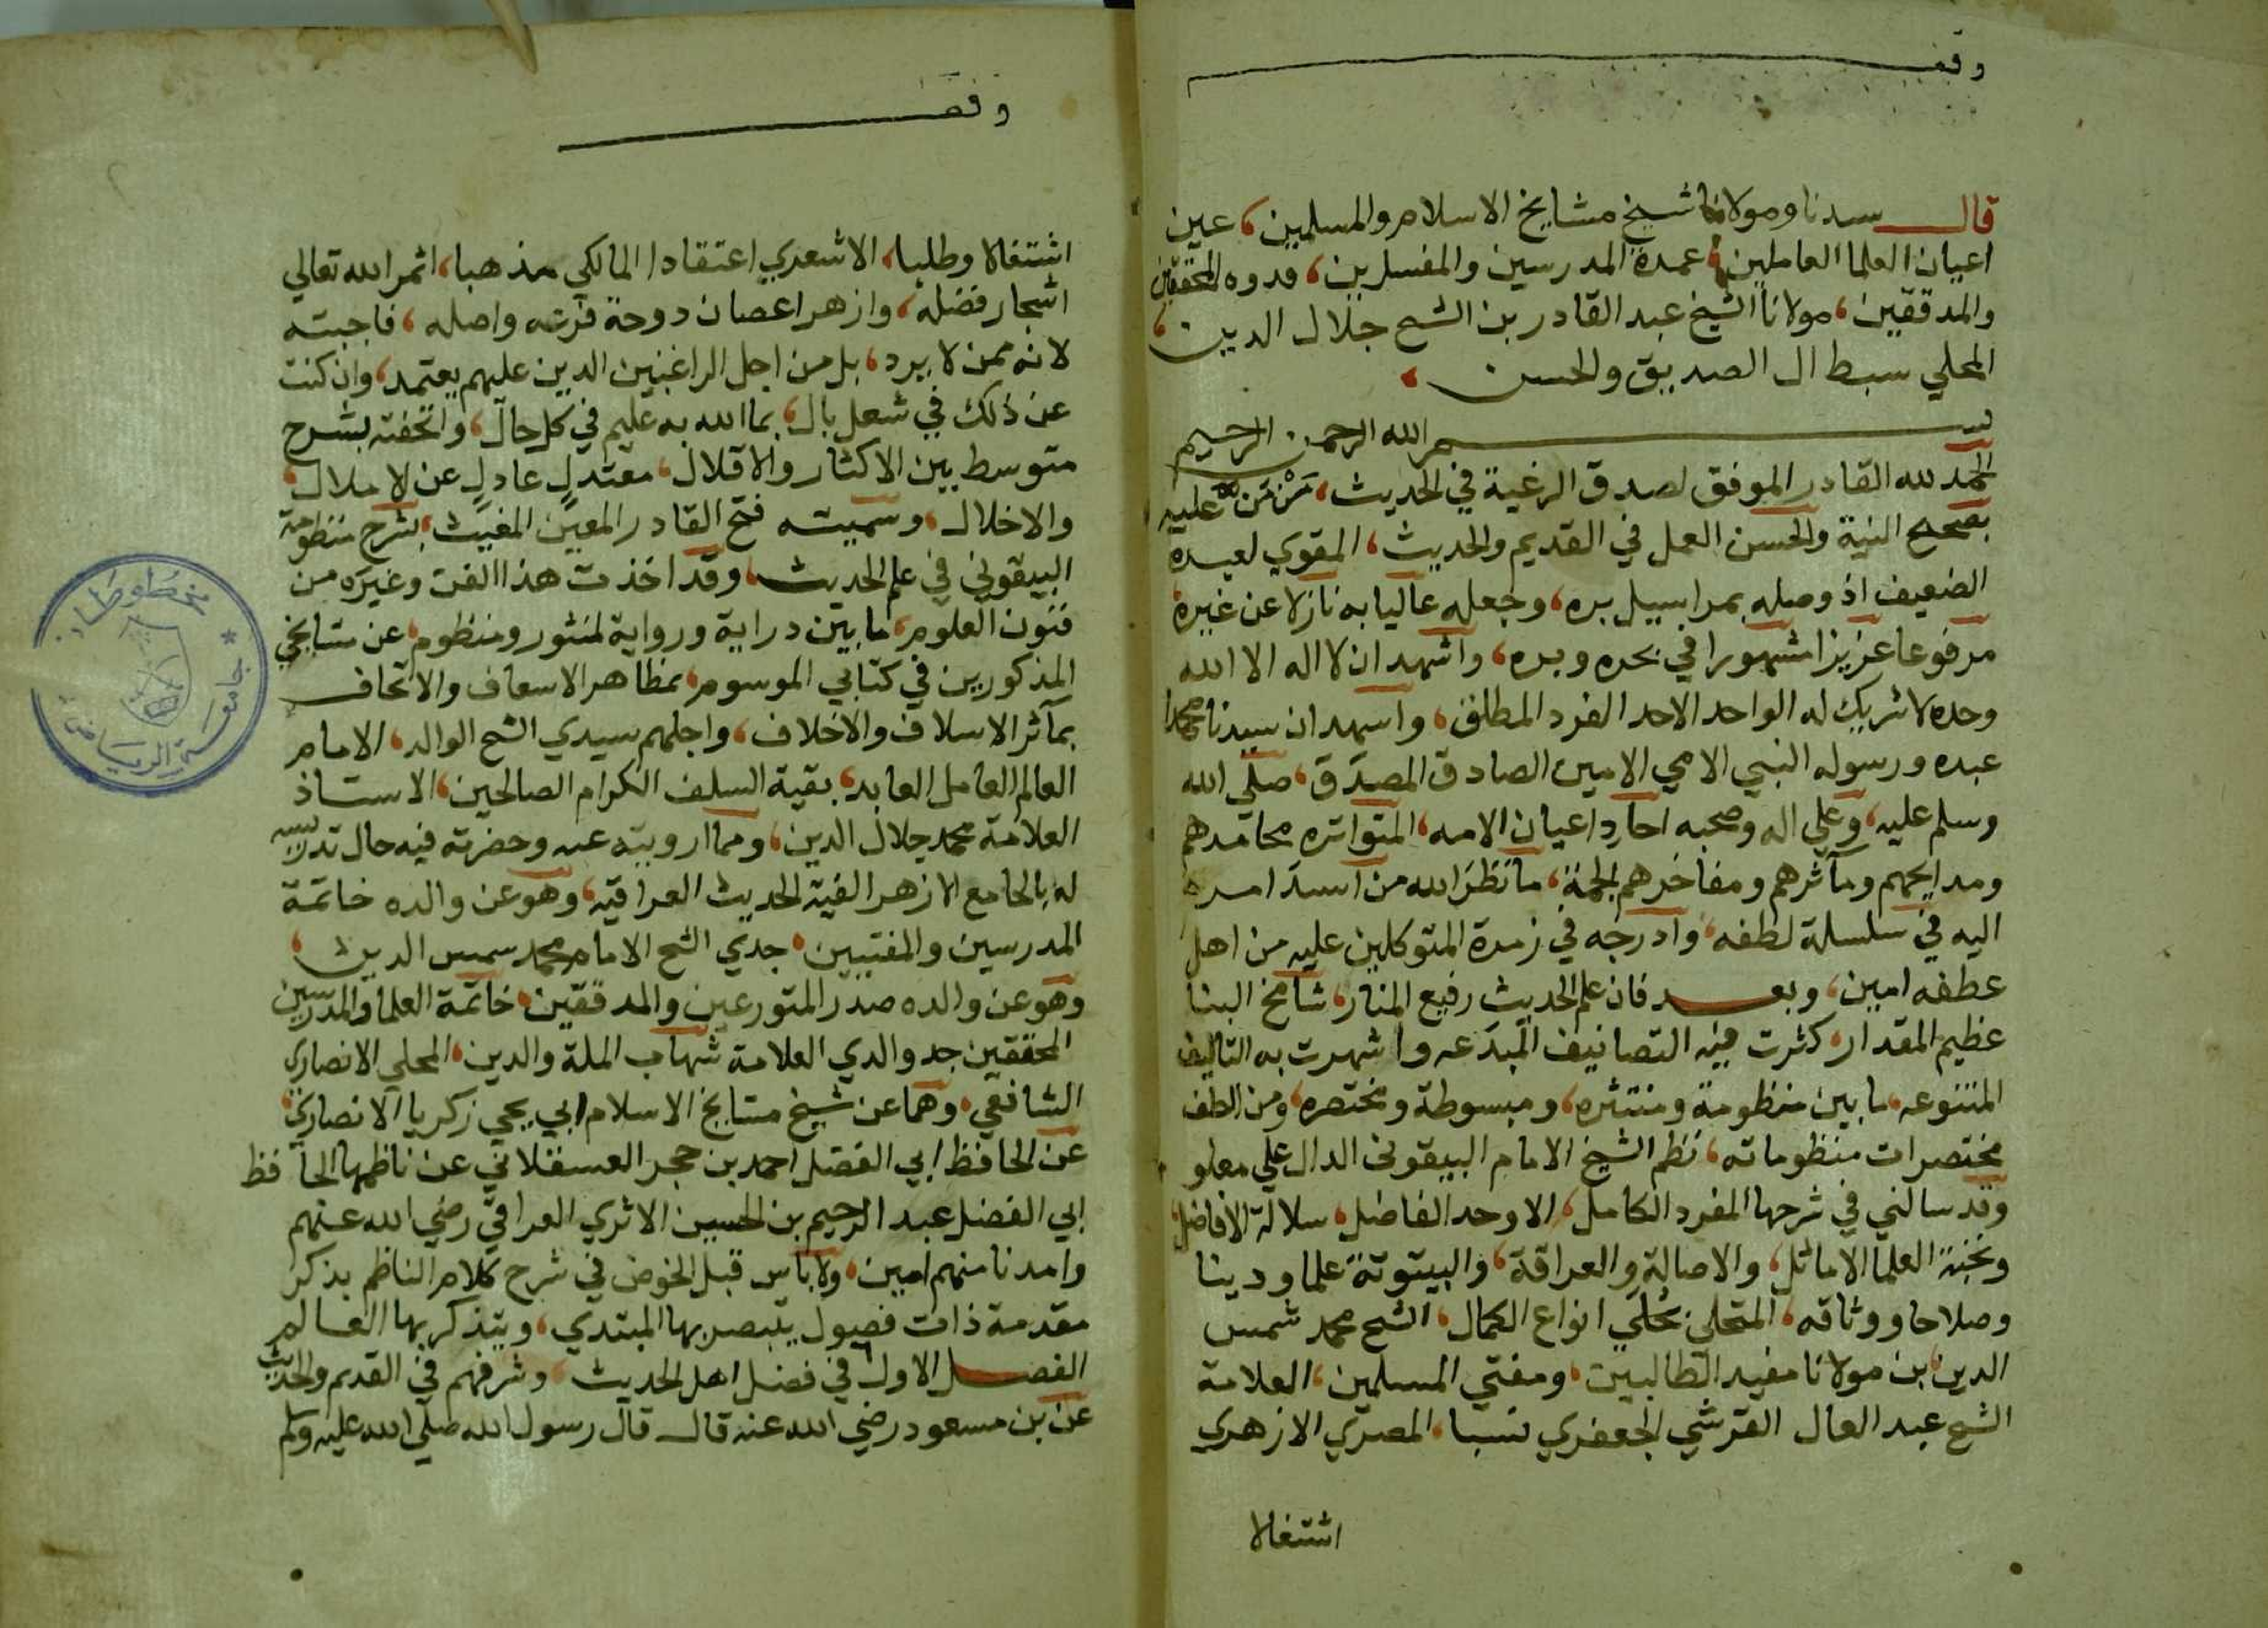 وقف
قال سيدنا ومولانا شيخ مشايخ الاسلام والمسلمين، عين
اعيان العلما العاملين، عمدة المدرسين والمفسرين، قدوه المحققين
والمدققين، مولانا الشيخ عبد القادر بن الشيخ جلال الدين،
المحلي سبط ال الصديق والحسن،
بسم الله الرحمن الرحيم
الحمد لله القادر الموفق لصدق الرغبة في الحديث، من من عليه
بصحيح النية والحسن العمل في القديم والحديث، المقوي لعبده
الضعيف اذ وصله بمراسيل بره، وجعله عاليا به نازلا عن غيره
مرفوعا عزيزا مشهورا في بحره وبره، واشهد ان لا اله الا الله
وحده لا شريك له الواحد الاحد الفرد المطلق، واشهد ان سيدنا محمدا
عبده ورسوله النبي الامي الامين الصادق المصدق، صلى الله
وسلم عليه، وعلي اله وصحبه احاد اعيان الامه، المتواتره محامدهم
ومدايحهم ومآثرهم ومفاخرهم الجمة، ما نظر الله من اسند امره
اليه في سلسلة لطفه، وادرجه في زمرة المتوكلين عليه من اهل
عطفه امين، وبعد فان علم الحديث رفيع المنار، شامخ البنا
عظيم المقدار، كثرت فيه التصانيف المبدعه واشهرت به التاليف
المتنوعه، ما بين منظومة ومنتثره، ومبسوطة ومختصره، ومن الطف
مختصرات منظوماته، نظم الشيخ الامام البيقوني الدال علي معلو
وقد سالني في شرحها المفرد الكامل، الاوحد الفاضل، سلالة الافاضل،
ونخبة العلما الاماثل، والاصالة والعراقة، والبيتوتة علما ودينا
وصلاحا ووثاقه، المتحلي بحلي انواع الكمال، الشيخ محمد شمس
الدين بن مولانا مفيد الطالبين، ومفتي المسلمين، العلامة
الشيخ عبد العال القرشي الجعفري نسبا، المصري الازهري
اشتغالا
وقف
اشتغالا وطلبا، الاشعري اعتقادا المالكي مذهبا، اثمر الله تعالي
اشجار فضله، وازهر اغصان دوحة فرعه واصله، فاجبته
لانه ممن لا يرد، بل من اجل الراغبين الدين عليهم يعتمد، وان كنت
عن ذلك في شغل بال، بما الله به عليم في كل حال، واتحفته بشرح
متوسط بين الاكثار والاقلال، معتدل عادل عن الاملال،
والاخلال، وسميته فتح القادر المعين المغيث، بشرح منظومة
البيقوني في علم الحديث، وقد اخذت هذا الفن وغيره من
فنون العلوم، ما بين دراية ورواية لمنثور ومنظوم، عن مشايخي
المذكورين في كتابي الموسوم، بمظاهر الاسعاف والاتحاف
بمآثر الاسلاف والاخلاف، واجلهم سيدي الشيخ الوالد، الامام
العالم العامل العابد، بقية السلف الكرام الصالحين، الاستاذ
العلامة محمد جلال الدين، ومما ارويته عنه وحضرته فيه حال تدريسه
له بالجامع الازهر الفية الحديث العراقيه، وهو عن والده خاتمة
المدرسين والمفتيين، جدي الشيخ الامام محمد شمس الدين،
وهو عن والده صدر المتورعين والمدققين، خاتمة العلما والمدرسين
المحققين جد والدي العلامة شهاب الملة والدين، المحلي الانصاري
الشافعي، وهما عن شيخ مشايخ الاسلام ابي يحيي زكريا الانصاري،
عن الحافظ ابي الفضل احمد بن حجر العسقلاني عن ناظمها الحافظ
ابي الفضل عبد الرحيم بن الحسين الاثري العراقي رضي الله عنهم
وامدنا منهم امين، ولا باس قبل الخوض في شرح كلام الناظم بذكر
مقدمة ذات فصول يتبصر بها المبتدي، ويتذكر بها العالم
الفصل الاول في فضل اهل الحديث، وشرفهم في القديم والحديث
عن بن مسعود رضي الله عنه قال قال رسول الله صلي الله عليه وسلم
مخطوطات
جامعة الرياض